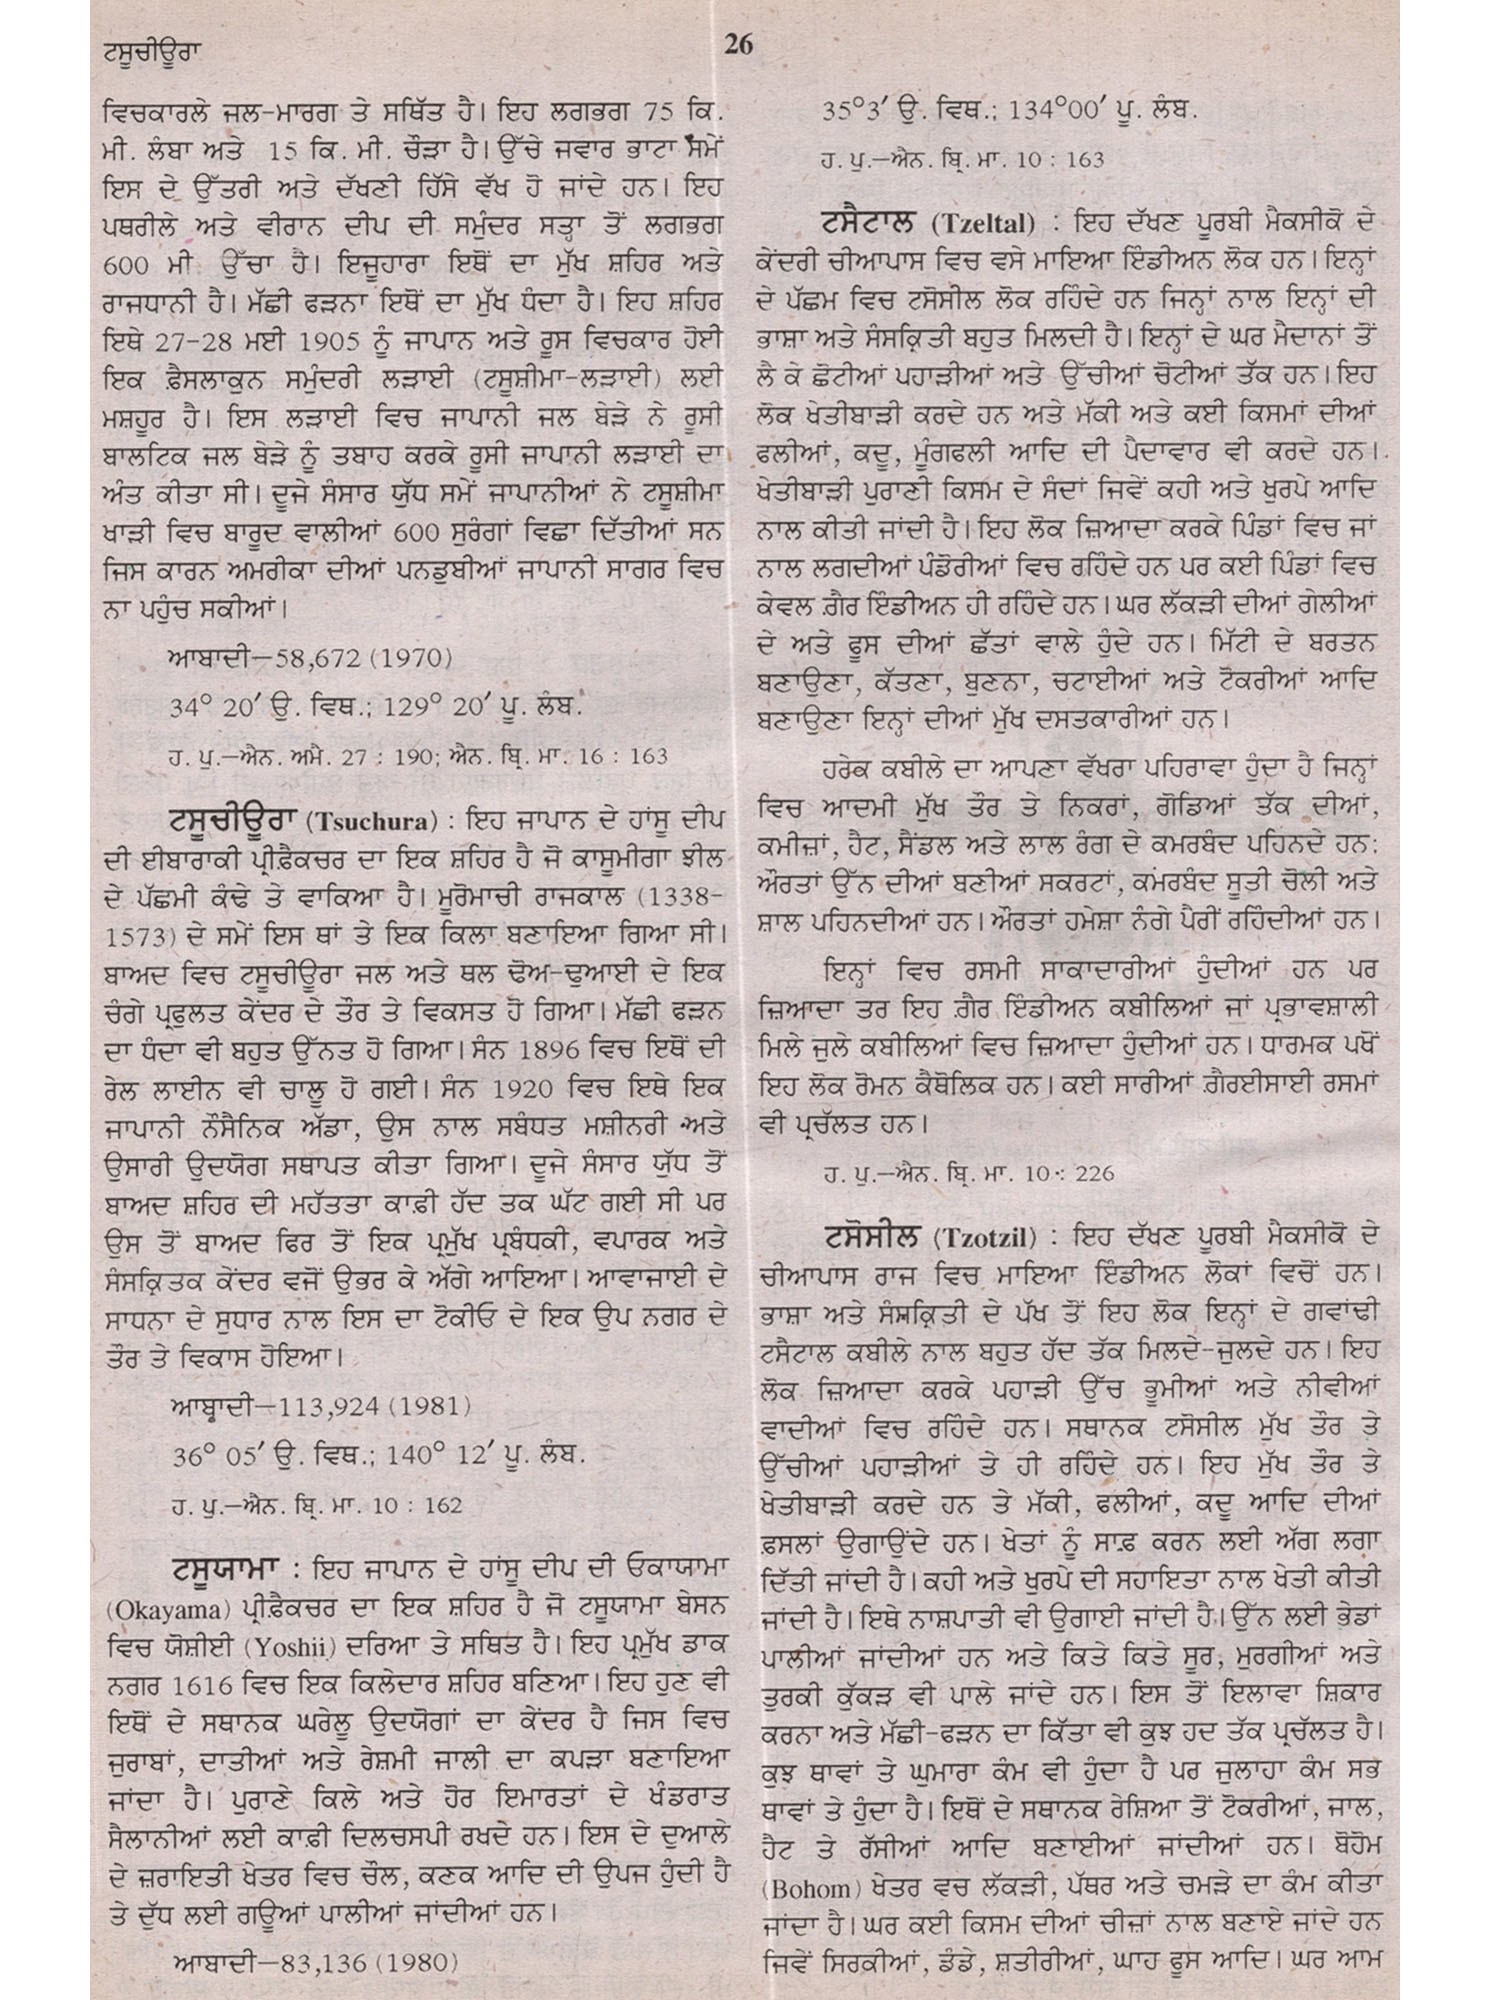 ਟਸੂਚੀਊਰਾ
26
ਵਿਚਕਾਰਲੇ ਜਲ-ਮਾਰਗ ਤੇ ਸਥਿੱਤ ਹੈ। ਇਹ ਲਗਭਗ 75 ਕਿ.
ਮੀ. ਲੰਬਾ ਅਤੇ 15 ਕਿ. ਮੀ. ਚੌੜਾ ਹੈ। ਉੱਚੇ ਜਵਾਰ ਭਾਟਾ ਸਮੇਂ
ਇਸ ਦੇ ਉੱਤਰੀ ਅਤੇ ਦੱਖਣੀ ਹਿੱਸੇ ਵੱਖ ਹੋ ਜਾਂਦੇ ਹਨ। ਇਹ
ਪਥਰੀਲੇ ਅਤੇ ਵੀਰਾਨ ਦੀਪ ਦੀ ਸਮੁੰਦਰ ਸਤ੍ਹਾ ਤੋਂ ਲਗਭਗ
600 ਮੀ. ਉੱਚਾ ਹੈ। ਇਜੂਹਾਰਾ ਇਥੋਂ ਦਾ ਮੁੱਖ ਸ਼ਹਿਰ ਅਤੇ
ਰਾਜਧਾਨੀ ਹੈ। ਮੱਛੀ ਫੜਨਾ ਇਥੋਂ ਦਾ ਮੁੱਖ ਧੰਦਾ ਹੈ। ਇਹ ਸ਼ਹਿਰ
ਇਥੇ 27-28 ਮਈ 1905 ਨੂੰ ਜਾਪਾਨ ਅਤੇ ਰੂਸ ਵਿਚਕਾਰ ਹੋਈ
ਇਕ ਫ਼ੈਸਲਾਕੁਨ ਸਮੁੰਦਰੀ ਲੜਾਈ (ਟਸੂਸ਼ੀਮਾ-ਲੜਾਈ) ਲਈ
ਮਸ਼ਹੂਰ ਹੈ। ਇਸ ਲੜਾਈ ਵਿਚ ਜਾਪਾਨੀ ਜਲ ਬੇੜੇ ਨੇ ਰੂਸੀ
ਬਾਲਟਿਕ ਜਲ ਬੇੜੇ ਨੂੰ ਤਬਾਹ ਕਰਕੇ ਰੂਸੀ ਜਾਪਾਨੀ ਲੜਾਈ ਦਾ
ਅੰਤ ਕੀਤਾ ਸੀ। ਦੂਜੇ ਸੰਸਾਰ ਯੁੱਧ ਸਮੇਂ ਜਾਪਾਨੀਆਂ ਨੇ ਟਸੂਸ਼ੀਮਾ
ਖਾੜੀ ਵਿਚ ਬਾਰੂਦ ਵਾਲੀਆਂ 600 ਸੁਰੰਗਾਂ ਵਿਛਾ ਦਿੱਤੀਆਂ ਸਨ
ਜਿਸ ਕਾਰਨ ਅਮਰੀਕਾ ਦੀਆਂ ਪਨਡੁਬੀਆਂ ਜਾਪਾਨੀ ਸਾਗਰ ਵਿਚ
ਨਾ ਪਹੁੰਚ ਸਕੀਆਂ।
ਆਬਾਦੀ—58,672 (1970)
34° 20′ ਉ. ਵਿਥ.; 129° 20′ ਪੂ. ਲੰਬ.
ਹ. ਪੁ.—ਐਨ. ਅਮੈ. 27 : 190; ਐਨ. ਬ੍ਰਿ. ਮਾ. 16 : 163
ਟਸੂਚੀਊਰਾ (Tsuchura) : ਇਹ ਜਾਪਾਨ ਦੇ ਹਾਂਸੂ ਦੀਪ
ਦੀ ਈਬਾਰਾਕੀ ਪ੍ਰੀਫ਼ੈਕਚਰ ਦਾ ਇਕ ਸ਼ਹਿਰ ਹੈ ਜੋ ਕਾਸੂਮੀਗਾ ਝੀਲ
ਦੇ ਪੱਛਮੀ ਕੰਢੇ ਤੇ ਵਾਕਿਆ ਹੈ। ਮੂਰੋਮਾਚੀ ਰਾਜਕਾਲ (1338-
1573) ਦੇ ਸਮੇਂ ਇਸ ਥਾਂ ਤੇ ਇਕ ਕਿਲਾ ਬਣਾਇਆ ਗਿਆ ਸੀ।
ਬਾਅਦ ਵਿਚ ਟਸੂਚੀਊਰਾ ਜਲ ਅਤੇ ਥਲ ਢੋਅ-ਢੁਆਈ ਦੇ ਇਕ
ਚੰਗੇ ਪ੍ਰਫੁਲਤ ਕੇਂਦਰ ਦੇ ਤੌਰ ਤੇ ਵਿਕਸਤ ਹੋ ਗਿਆ। ਮੱਛੀ ਫੜਨ
ਦਾ ਧੰਦਾ ਵੀ ਬਹੁਤ ਉੱਨਤ ਹੋ ਗਿਆ। ਸੰਨ 1896 ਵਿਚ ਇਥੋਂ ਦੀ
ਰੇਲ ਲਾਈਨ ਵੀ ਚਾਲੂ ਹੋ ਗਈ। ਸੰਨ 1920 ਵਿਚ ਇਥੇ ਇਕ
ਜਾਪਾਨੀ ਨੌਸੈਨਿਕ ਅੱਡਾ, ਉਸ ਨਾਲ ਸਬੰਧਤ ਮਸ਼ੀਨਰੀ ਅਤੇ
ਉਸਾਰੀ ਉਦਯੋਗ ਸਥਾਪਤ ਕੀਤਾ ਗਿਆ। ਦੂਜੇ ਸੰਸਾਰ ਯੁੱਧ ਤੋਂ
ਬਾਅਦ ਸ਼ਹਿਰ ਦੀ ਮਹੱਤਤਾ ਕਾਫ਼ੀ ਹੱਦ ਤਕ ਘੱਟ ਗਈ ਸੀ ਪਰ
ਉਸ ਤੋਂ ਬਾਅਦ ਫਿਰ ਤੋਂ ਇਕ ਪ੍ਰਮੁੱਖ ਪ੍ਰਬੰਧਕੀ, ਵਪਾਰਕ ਅਤੇ
ਸੰਸਕ੍ਰਿਤਕ ਕੇਂਦਰ ਵਜੋਂ ਉਭਰ ਕੇ ਅੱਗੇ ਆਇਆ। ਆਵਾਜਾਈ ਦੇ
ਸਾਧਨਾ ਦੇ ਸੁਧਾਰ ਨਾਲ ਇਸ ਦਾ ਟੋਕੀਓ ਦੇ ਇਕ ਉਪ ਨਗਰ ਦੇ
ਤੌਰ ਤੇ ਵਿਕਾਸ ਹੋਇਆ।
ਆਬਾਦੀ—113,924 (1981)
36° 05′ ਉ. ਵਿਥ.; 140° 12′ ਪੂ. ਲੰਬ.
ਹ. ਪੁ.—ਐਨ. ਬ੍ਰਿ. ਮਾ. 10 : 162
ਟਸੂਯਾਮਾ : ਇਹ ਜਾਪਾਨ ਦੇ ਹਾਂਸੂ ਦੀਪ ਦੀ ਓਕਾਯਾਮਾ
(Okayama) ਪ੍ਰੀਫ਼ੈਕਚਰ ਦਾ ਇਕ ਸ਼ਹਿਰ ਹੈ ਜੋ ਟਸੂਯਾਮਾ ਬੇਸਨ
ਵਿਚ ਯੋਸ਼ੀਈ (Yoshii) ਦਰਿਆ ਤੇ ਸਥਿਤ ਹੈ। ਇਹ ਪ੍ਰਮੁੱਖ ਡਾਕ
ਨਗਰ 1616 ਵਿਚ ਇਕ ਕਿਲੇਦਾਰ ਸ਼ਹਿਰ ਬਣਿਆ। ਇਹ ਹੁਣ ਵੀ
ਇਥੋਂ ਦੇ ਸਥਾਨਕ ਘਰੇਲੂ ਉਦਯੋਗਾਂ ਦਾ ਕੇਂਦਰ ਹੈ ਜਿਸ ਵਿਚ
ਜੁਰਾਬਾਂ, ਦਾਤੀਆਂ ਅਤੇ ਰੇਸ਼ਮੀ ਜਾਲੀ ਦਾ ਕਪੜਾ ਬਣਾਇਆ
ਜਾਂਦਾ ਹੈ। ਪੁਰਾਣੇ ਕਿਲੇ ਅਤੇ ਹੋਰ ਇਮਾਰਤਾਂ ਦੇ ਖੰਡਰਾਤ
ਸੈਲਾਨੀਆਂ ਲਈ ਕਾਫ਼ੀ ਦਿਲਚਸਪੀ ਰਖਦੇ ਹਨ। ਇਸ ਦੇ ਦੁਆਲੇ
ਦੇ ਜ਼ਰਾਇਤੀ ਖੇਤਰ ਵਿਚ ਚੌਲ, ਕਣਕ ਆਦਿ ਦੀ ਉਪਜ ਹੁੰਦੀ ਹੈ
ਤੇ ਦੁੱਧ ਲਈ ਗਊਆਂ ਪਾਲੀਆਂ ਜਾਂਦੀਆਂ ਹਨ।
ਆਬਾਦੀ—83,136 (1980)
35°3′ ਉ. ਵਿਥ.; 134°00′ ਪੂ. ਲੰਬ.
ਹ. ਪੁ.—ਐਨ. ਬ੍ਰਿ. ਮਾ. 10 : 163
ਟਸੈਟਾਲ (Tzeltal) : ਇਹ ਦੱਖਣ ਪੂਰਬੀ ਮੈਕਸੀਕੋ ਦੇ
ਕੇਂਦਰੀ ਚੀਆਪਾਸ ਵਿਚ ਵਸੇ ਮਾਇਆ ਇੰਡੀਅਨ ਲੋਕ ਹਨ। ਇਨ੍ਹਾਂ
ਦੇ ਪੱਛਮ ਵਿਚ ਟਸੋਸੀਲ ਲੋਕ ਰਹਿੰਦੇ ਹਨ ਜਿਨ੍ਹਾਂ ਨਾਲ ਇਨ੍ਹਾਂ ਦੀ
ਭਾਸ਼ਾ ਅਤੇ ਸੰਸਕ੍ਰਿਤੀ ਬਹੁਤ ਮਿਲਦੀ ਹੈ। ਇਨ੍ਹਾਂ ਦੇ ਘਰ ਮੈਦਾਨਾਂ ਤੋਂ
ਲੈ ਕੇ ਛੋਟੀਆਂ ਪਹਾੜੀਆਂ ਅਤੇ ਉੱਚੀਆਂ ਚੋਟੀਆਂ ਤੱਕ ਹਨ। ਇਹ
ਲੋਕ ਖੇਤੀਬਾੜੀ ਕਰਦੇ ਹਨ ਅਤੇ ਮੱਕੀ ਅਤੇ ਕਈ ਕਿਸਮਾਂ ਦੀਆਂ
ਫਲੀਆਂ, ਕਦੂ, ਮੂੰਗਫਲੀ ਆਦਿ ਦੀ ਪੈਦਾਵਾਰ ਵੀ ਕਰਦੇ ਹਨ।
ਖੇਤੀਬਾੜੀ ਪੁਰਾਣੀ ਕਿਸਮ ਦੇ ਸੰਦਾਂ ਜਿਵੇਂ ਕਹੀ ਅਤੇ ਖੁਰਪੇ ਆਦਿ
ਨਾਲ ਕੀਤੀ ਜਾਂਦੀ ਹੈ। ਇਹ ਲੋਕ ਜ਼ਿਆਦਾ ਕਰਕੇ ਪਿੰਡਾਂ ਵਿਚ ਜਾਂ
ਨਾਲ ਲਗਦੀਆਂ ਪੰਡੋਰੀਆਂ ਵਿਚ ਰਹਿੰਦੇ ਹਨ ਪਰ ਕਈ ਪਿੰਡਾਂ ਵਿਚ
ਕੇਵਲ ਗ਼ੈਰ ਇੰਡੀਅਨ ਹੀ ਰਹਿੰਦੇ ਹਨ। ਘਰ ਲੱਕੜੀ ਦੀਆਂ ਗੇਲੀਆਂ
ਦੇ ਅਤੇ ਫੂਸ ਦੀਆਂ ਛੱਤਾਂ ਵਾਲੇ ਹੁੰਦੇ ਹਨ। ਮਿੱਟੀ ਦੇ ਬਰਤਨ
ਬਣਾਉਣਾ, ਕੱਤਣਾ, ਬੁਣਨਾ, ਚਟਾਈਆਂ ਅਤੇ ਟੋਕਰੀਆਂ ਆਦਿ
ਬਣਾਉਣਾ ਇਨ੍ਹਾਂ ਦੀਆਂ ਮੁੱਖ ਦਸਤਕਾਰੀਆਂ ਹਨ।
ਹਰੇਕ ਕਬੀਲੇ ਦਾ ਆਪਣਾ ਵੱਖਰਾ ਪਹਿਰਾਵਾ ਹੁੰਦਾ ਹੈ ਜਿਨ੍ਹਾਂ
ਵਿਚ ਆਦਮੀ ਮੁੱਖ ਤੌਰ ਤੇ ਨਿਕਰਾਂ, ਗੋਡਿਆਂ ਤੱਕ ਦੀਆਂ,
ਕਮੀਜ਼ਾਂ, ਹੈਟ, ਸੈਂਡਲ ਅਤੇ ਲਾਲ ਰੰਗ ਦੇ ਕਮਰਬੰਦ ਪਹਿਨਦੇ ਹਨ:
ਔਰਤਾਂ ਉੱਨ ਦੀਆਂ ਬਣੀਆਂ ਸਕਰਟਾਂ, ਕਮਰਬੰਦ ਸੂਤੀ ਚੋਲੀ ਅਤੇ
ਸ਼ਾਲ ਪਹਿਨਦੀਆਂ ਹਨ। ਔਰਤਾਂ ਹਮੇਸ਼ਾ ਨੰਗੇ ਪੈਰੀਂ ਰਹਿੰਦੀਆਂ ਹਨ।
ਇਨ੍ਹਾਂ ਵਿਚ ਰਸਮੀ ਸਾਕਾਦਾਰੀਆਂ ਹੁੰਦੀਆਂ ਹਨ ਪਰ
ਜ਼ਿਆਦਾ ਤਰ ਇਹ ਗ਼ੈਰ ਇੰਡੀਅਨ ਕਬੀਲਿਆਂ ਜਾਂ ਪ੍ਰਭਾਵਸ਼ਾਲੀ
ਮਿਲੇ ਜੁਲੇ ਕਬੀਲਿਆਂ ਵਿਚ ਜ਼ਿਆਦਾ ਹੁੰਦੀਆਂ ਹਨ। ਧਾਰਮਕ ਪਖੋਂ
ਇਹ ਲੋਕ ਰੋਮਨ ਕੈਥੋਲਿਕ ਹਨ। ਕਈ ਸਾਰੀਆਂ ਗ਼ੈਰਈਸਾਈ ਰਸਮਾਂ
ਵੀ ਪ੍ਰਚੱਲਤ ਹਨ।
ਹ. ਪੁ.—ਐਨ. ਬ੍ਰਿ. ਮਾ. 10 : 226
ਟਸੋਸੀਲ (Tzotzil) : ਇਹ ਦੱਖਣ ਪੂਰਬੀ ਮੈਕਸੀਕੋ ਦੇ
ਚੀਆਪਾਸ ਰਾਜ ਵਿਚ ਮਾਇਆ ਇੰਡੀਅਨ ਲੋਕਾਂ ਵਿਚੋਂ ਹਨ।
ਭਾਸ਼ਾ ਅਤੇ ਸੰਸਕ੍ਰਿਤੀ ਦੇ ਪੱਖ ਤੋਂ ਇਹ ਲੋਕ ਇਨ੍ਹਾਂ ਦੇ ਗਵਾਂਢੀ
ਟਸੈਟਾਲ ਕਬੀਲੇ ਨਾਲ ਬਹੁਤ ਹੱਦ ਤੱਕ ਮਿਲਦੇ-ਜੁਲਦੇ ਹਨ। ਇਹ
ਲੋਕ ਜ਼ਿਆਦਾ ਕਰਕੇ ਪਹਾੜੀ ਉੱਚ ਭੂਮੀਆਂ ਅਤੇ ਨੀਵੀਆਂ
ਵਾਦੀਆਂ ਵਿਚ ਰਹਿੰਦੇ ਹਨ। ਸਥਾਨਕ ਟਸੋਸੀਲ ਮੁੱਖ ਤੌਰ ਤੇ
ਉੱਚੀਆਂ ਪਹਾੜੀਆਂ ਤੇ ਹੀ ਰਹਿੰਦੇ ਹਨ। ਇਹ ਮੁੱਖ ਤੌਰ ਤੇ
ਖੇਤੀਬਾੜੀ ਕਰਦੇ ਹਨ ਤੇ ਮੱਕੀ, ਫਲੀਆਂ, ਕਦੂ ਆਦਿ ਦੀਆਂ
ਫ਼ਸਲਾਂ ਉਗਾਉਂਦੇ ਹਨ। ਖੇਤਾਂ ਨੂੰ ਸਾਫ਼ ਕਰਨ ਲਈ ਅੱਗ ਲਗਾ
ਦਿੱਤੀ ਜਾਂਦੀ ਹੈ। ਕਹੀ ਅਤੇ ਖੁਰਪੇ ਦੀ ਸਹਾਇਤਾ ਨਾਲ ਖੇਤੀ ਕੀਤੀ
ਜਾਂਦੀ ਹੈ। ਇਥੇ ਨਾਸ਼ਪਾਤੀ ਵੀ ਉਗਾਈ ਜਾਂਦੀ ਹੈ। ਉੱਨ ਲਈ ਭੇਡਾਂ
ਪਾਲੀਆਂ ਜਾਂਦੀਆਂ ਹਨ ਅਤੇ ਕਿਤੇ ਕਿਤੇ ਸੂਰ, ਮੁਰਗੀਆਂ ਅਤੇ
ਤੁਰਕੀ ਕੁੱਕੜ ਵੀ ਪਾਲੇ ਜਾਂਦੇ ਹਨ। ਇਸ ਤੋਂ ਇਲਾਵਾ ਸ਼ਿਕਾਰ
ਕਰਨਾ ਅਤੇ ਮੱਛੀ-ਫੜਨ ਦਾ ਕਿੱਤਾ ਵੀ ਕੁਝ ਹਦ ਤੱਕ ਪ੍ਰਚੱਲਤ ਹੈ।
ਕੁਝ ਥਾਵਾਂ ਤੇ ਘੁਮਾਰਾ ਕੰਮ ਵੀ ਹੁੰਦਾ ਹੈ ਪਰ ਜੁਲਾਹਾ ਕੰਮ ਸਭ
ਥਾਵਾਂ ਤੇ ਹੁੰਦਾ ਹੈ। ਇਥੋਂ ਦੇ ਸਥਾਨਕ ਰੇਸ਼ਿਆ ਤੋਂ ਟੋਕਰੀਆਂ, ਜਾਲ,
ਹੈਟ ਤੇ ਰੱਸੀਆਂ ਆਦਿ ਬਣਾਈਆਂ ਜਾਂਦੀਆਂ ਹਨ। ਬੋਹੋਮ
(Bohom) ਖੇਤਰ ਵਚ ਲੱਕੜੀ, ਪੱਥਰ ਅਤੇ ਚਮੜੇ ਦਾ ਕੰਮ ਕੀਤਾ
ਜਾਂਦਾ ਹੈ। ਘਰ ਕਈ ਕਿਸਮ ਦੀਆਂ ਚੀਜ਼ਾਂ ਨਾਲ ਬਣਾਏ ਜਾਂਦੇ ਹਨ
ਜਿਵੇਂ ਸਿਰਕੀਆਂ, ਡੰਡੇ, ਸ਼ਤੀਰੀਆਂ, ਘਾਹ ਫੂਸ ਆਦਿ। ਘਰ ਆਮ